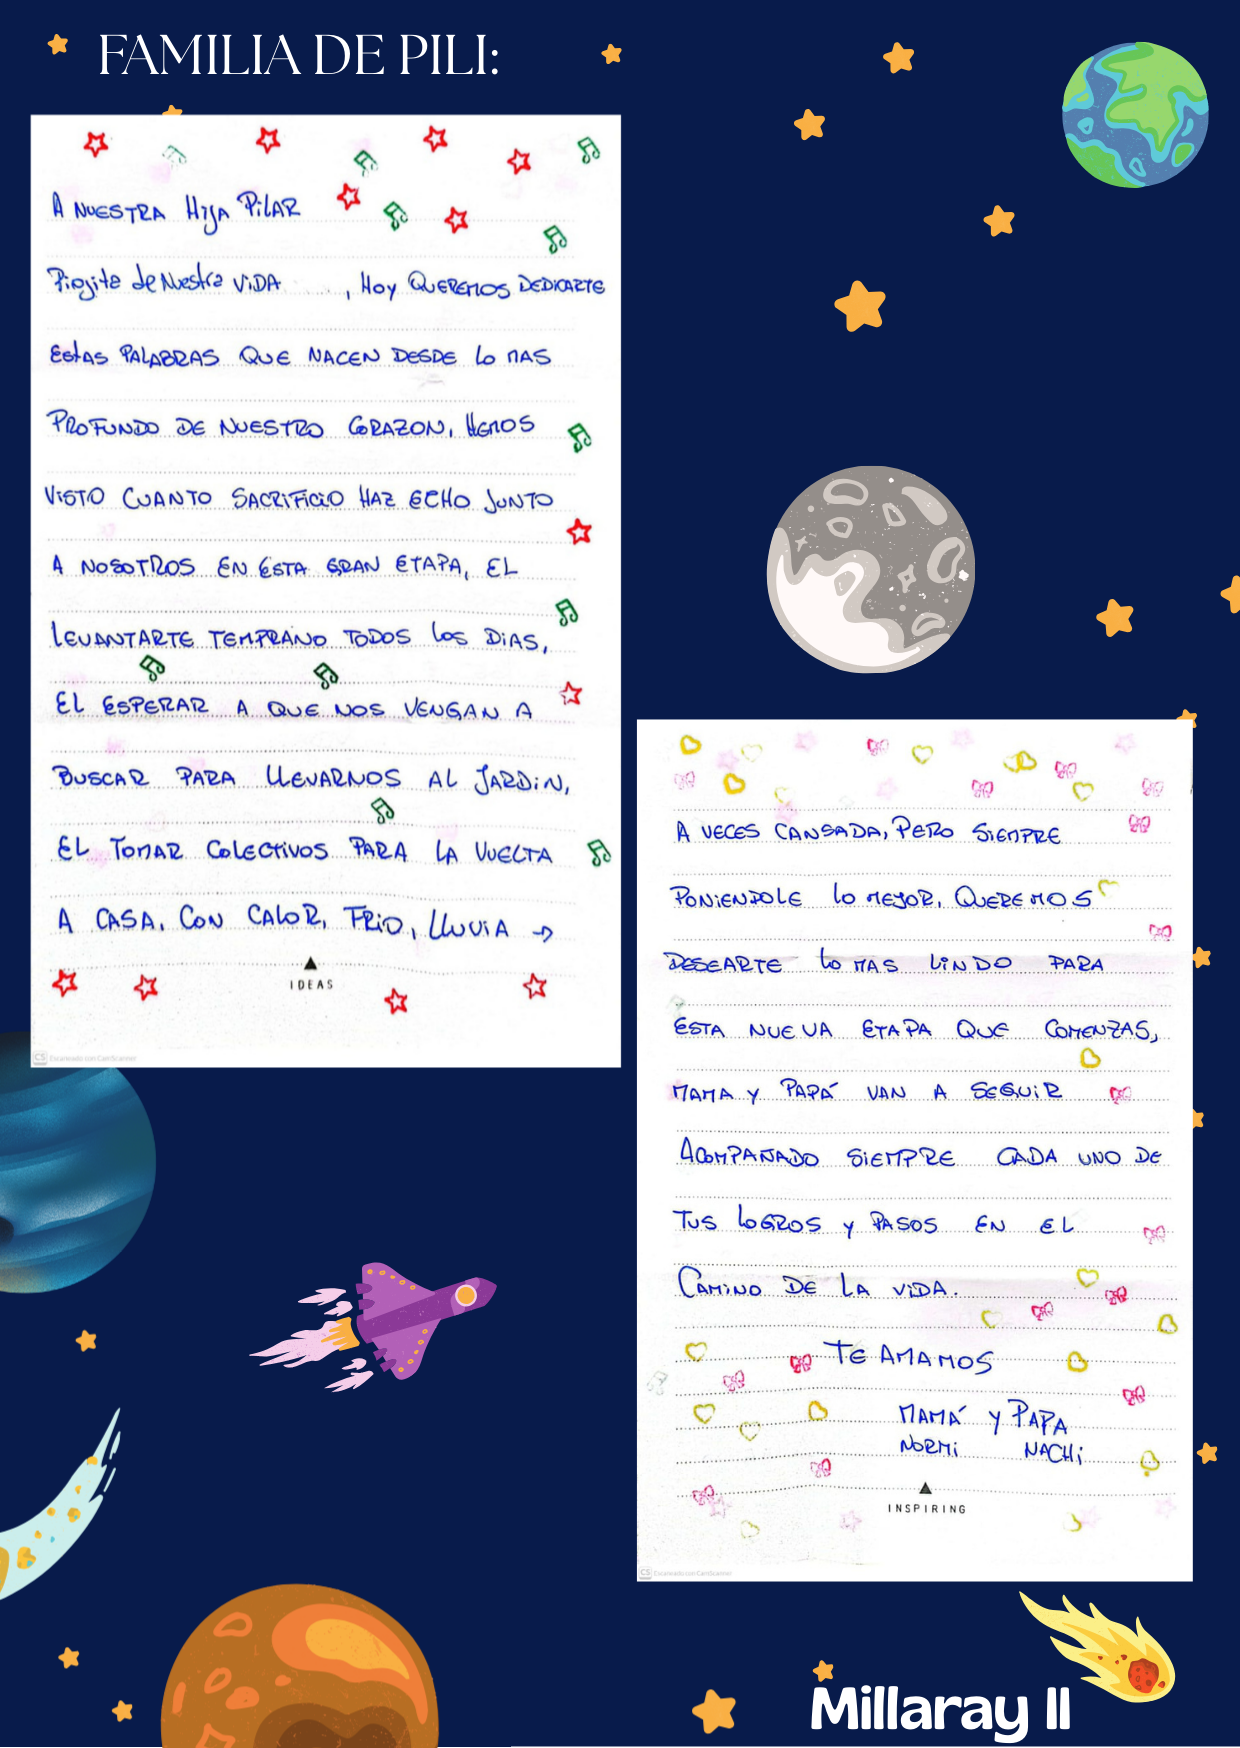 FAMILIA DE PILI:
A NUESTRA HIJA PILAR
Piojita de Nuestra VIDA , HOY QUEREMOS DEDICARTE
EStAS PALABRAS QUE NACEN DESDE LO MAS
PROFUNDO DE NUESTRO CORAZON, HEMOS
VISTO CUANTO SACRIFICIO HAZ ECHO JUNTO
A NOSOTROS EN ESTA GRAN ETAPA, EL
LEVANTARTE TEMPRANO TODOS LOS DIAS,
EL ESPERAR A QUE NOS VENGAN A
BUSCAR PARA LLEVARNOS AL JARDIN,
EL TOMAR COLECTIVOS PARA LA VUELTA
A CASA, CON CALOR, FRIO, LLUVIA →
IDEAS
CS Escaneado con CamScanner
A VECES CANSADA, PERO SIEMPRE
PONIENDOLE LO MEJOR, QUEREMOS
DESEARTE LO MAS LINDO PARA
ESTA NUEVA ETAPA QUE COMENZAS,
MAMA Y PAPÁ VAN A SEGUIR
ACOMPAÑADO SIEMPRE CADA UNO DE
TUS LOGROS Y PASOS EN EL
CAMINO DE LA VIDA.
TE AMAMOS
MAMÁ Y PAPA
NORMI NACHI
INSPIRING
CS Escaneado con CamScanner
Millaray II